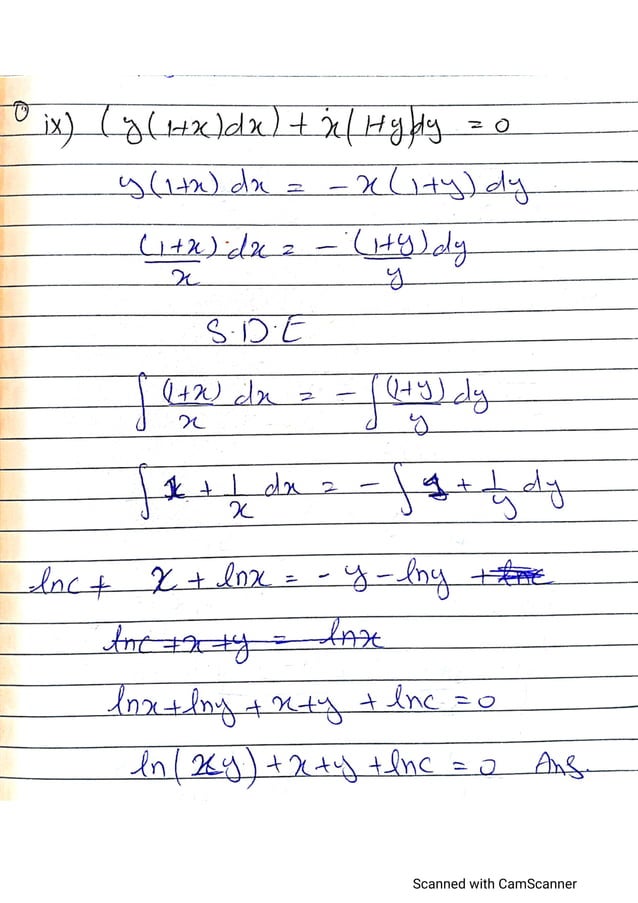 ix) (y(1+x)dx) + x(1+y)dy = 0
y(1+x) dx = - x(1+y) dy
(1+x)/x dx = - (1+y)/y dy
S.D.E
∫ (1+x)/x dx = - ∫ (1+y)/y dy
∫ 1 + 1/x dx = - ∫ 1 + 1/y dy
lnc + x + lnx = - y - lny +
lnc + x + y = lnx
lnx + lny + x + y + lnc = 0
ln(xy) + x + y + lnc = 0 Ans.
Scanned with CamScanner